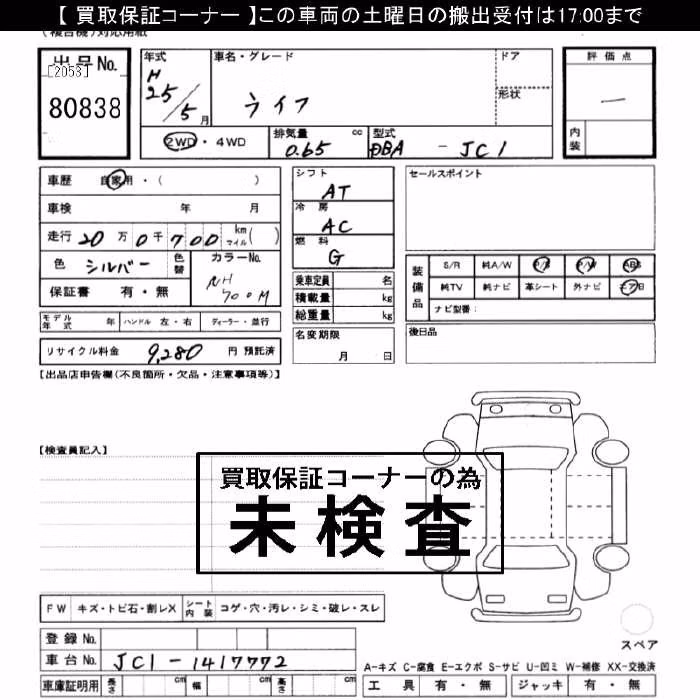 【 買取保証コーナー 】この車両の土曜日の搬出受付は17:00まで
出品No.
[2053]
80838
年式
H
25/5月
車名・グレード
ライフ
ドア
形状
評価点
一
内装
2WD ・ 4WD
排気量 cc
0.65
型式
DBA - JC1
車歴 自家用・( )
車検 年 月
走行 20万0千700 km マイル( )
色 シルバー 色替
カラーNo.
NH
700M
保証書 有・無
モデル年式 年 ハンドル 左・右 ディーラー・並行
リサイクル料金 9,280 円 預託済
シフト
AT
冷房
AC
燃料
G
乗車定員 名
積載量 kg
総重量 kg
名変期限
月 日
セールスポイント
装備品
S/R 純A/W P/S P/W ABS
純TV 純ナビ 革シート 外ナビ エアB
ナビ型番:
後日品
【出品店申告欄(不良箇所・欠品・注意事項等)】
【検査員記入】
買取保証コーナーの為
未検査
FW キズ・トビ石・割レX シート内装 コゲ・穴・汚レ・シミ・破レ・スレ
登録No.
車台No. JC1-1417772
車庫証明用 長さ cm 幅 cm 高さ cm
スペア
A-キズ C-腐食 E-エクボ S-サビ U-凹ミ W-補修 XX-交換済
工具 有・無 ジャッキ 有・無